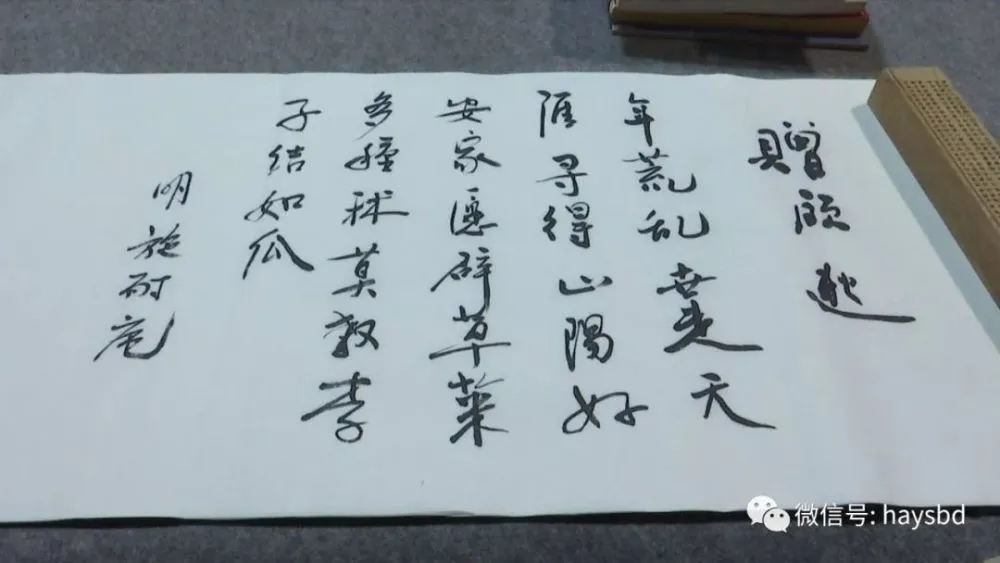 贈顾逖
年荒乱世走天
涯寻得山阳好
安家愿辟草莱
多種秫莫教李
子结如瓜
明施耐庵
微信号: haysbd